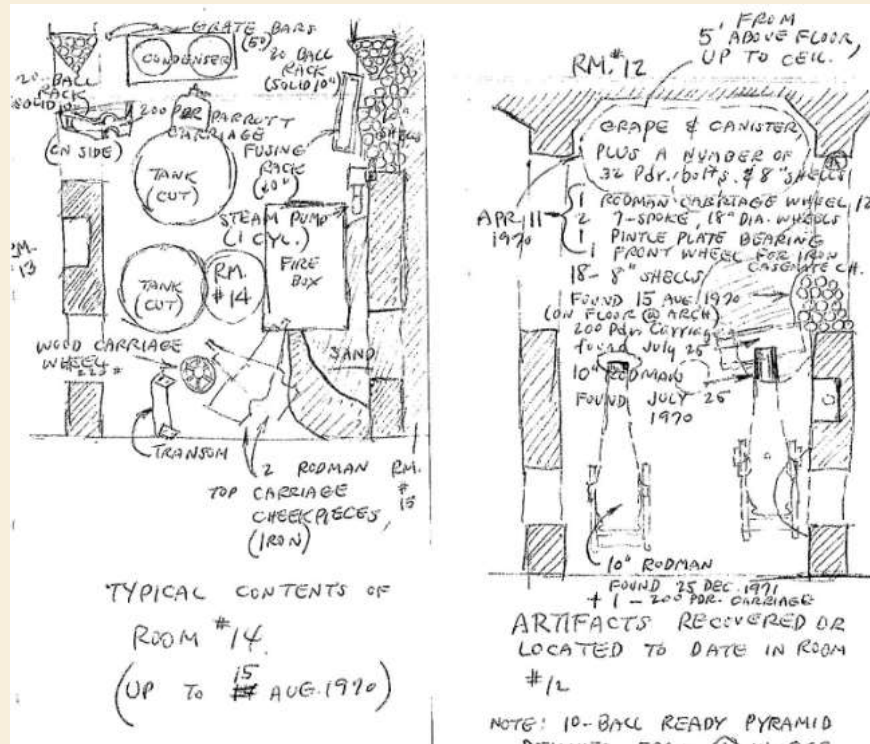 GRATE BARS
(50)
CONDENSER
20 BALL
RACK
(SOLID 10")
20 BALL
RACK
(SOLID 10")
(ON SIDE)
200 PDR
PARROTT
CARRIAGE
FUSING
RACK
(10")
10"
SHELLS
TANK
(CUT)
STEAM PUMP
(1 CYL.)
FIRE
BOX
RM.
#13
TANK
(CUT)
RM.
#14
SAND
WOOD CARRIAGE
WHEEL
TRANSOM
2 RODMAN
TOP CARRIAGE
CHEEKPIECES,
(IRON)
RM.
#
15
TYPICAL CONTENTS OF
ROOM #14.
(UP TO 15 AUG. 1970)
RM. #12
FROM
5' ABOVE FLOOR,
UP TO CEIL.
GRAPE & CANISTER
PLUS A NUMBER OF
32 Pdr. bolts. & 8" SHELLS
APR 11
1970
1 RODMAN CARRIAGE WHEEL, 12
2 7-SPOKE, 18" DIA. WHEELS
1 PINTLE PLATE BEARING
1 FRONT WHEEL FOR IRON
CASEMATE CH.
18- 8" SHELLS
FOUND 15 AUG. 1970
(ON FLOOR @ ARCH)
200 Pdr. Carriage
found July 25
10" RODMAN
FOUND JULY 25
1970
10" RODMAN
FOUND 25 DEC. 1971
+ 1 - 200 PDR. CARRIAGE
ARTIFACTS RECOVERED OR
LOCATED TO DATE IN ROOM
#12
NOTE: 10-BALL READY PYRAMID